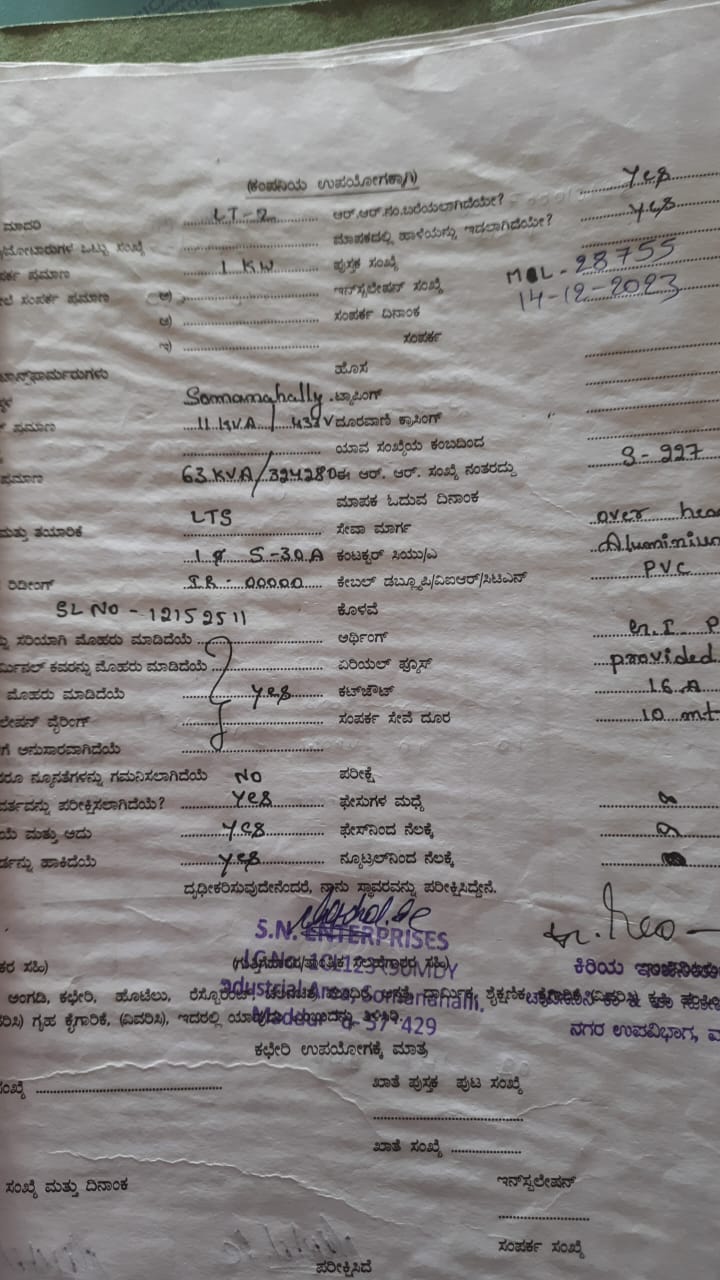 (ಕಂಪನಿಯ ಉಪಯೋಗಕ್ಕಾಗಿ)
ಮಾದರಿ LT-2 ಆರ್.ಆರ್.ನಂ.ಬರೆಯಲಾಗಿದೆಯೇ? Yes
ಮೋಟಾರುಗಳ ಒಟ್ಟು ಸಂಖ್ಯೆ ಮಾಪಕದಲ್ಲಿ ಹಾಳೆಯನ್ನು ಇಡಲಾಗಿದೆಯೇ? Yes
ಪರ್ಕ ಪ್ರಮಾಣ 1 KW ಪುಸ್ತಕ ಸಂಖ್ಯೆ
ಸಂಪರ್ಕ ಪ್ರಮಾಣ ಅ) ಇನ್‌ಸ್ಟಲೇಷನ್ ಸಂಖ್ಯೆ MOL-28755
ಆ) ಸಂಪರ್ಕ ದಿನಾಂಕ 14-12-2023
ಇ) ಸಂಪರ್ಕ
ಟ್ರಾನ್ಸ್‌ಫಾರ್ಮರುಗಳು ಹೊಸ
Somanahally ಟ್ಯಾಪಿಂಗ್
ಪ್ರಮಾಣ 11 KVA / 433 V ದೂರವಾಣಿ ಕ್ರಾಸಿಂಗ್
ಯಾವ ಸಂಖ್ಯೆಯ ಕಂಬದಿಂದ
ಪ್ರಮಾಣ 63 KVA/324280 ಈ ಆರ್. ಆರ್. ಸಂಖ್ಯೆ ನಂತರದ್ದು S-227
ಮಾಪಕ ಓದುವ ದಿನಾಂಕ
ಮತ್ತು ತಯಾರಿಕೆ LTS ಸೇವಾ ಮಾರ್ಗ over hea
1φ 5-30A ಕಂಟಕ್ಟರ್ ಸಿಯು/ಎ Aluminium
ರಿಡೀಂಗ್ IR-00000 ಕೇಬಲ್ ಡಬ್ಲ್ಯೂಪಿ/ವಿಐಆರ್/ಸಿಟಿಎಸ್ PVC
SL NO - 12152511 ಕೊಳವೆ
ಸರಿಯಾಗಿ ಮೊಹರು ಮಾಡಿದೆಯೆ ಅರ್ಥಿಂಗ್ G.I P
ರ್ಮಿನಲ್ ಕವರನ್ನು ಮೊಹರು ಮಾಡಿದೆಯೆ ಏರಿಯಲ್ ಫ್ಯೂಸ್ provided
ಮೊಹರು ಮಾಡಿದೆಯೆ Yes ಕಟ್‌ಔಟ್ 16 A
ಲೇಷನ್ ವೈರಿಂಗ್ ಸಂಪರ್ಕ ಸೇವೆ ದೂರ 10 mt
ಗೆ ಅನುಸಾರವಾಗಿದೆಯೆ
ದರೂ ನ್ಯೂನತೆಗಳನ್ನು ಗಮನಿಸಲಾಗಿದೆಯೆ NO ಪರೀಕ್ಷೆ
ವರ್ತವನ್ನು ಪರೀಕ್ಷಿಸಲಾಗಿದೆಯೆ? Yes ಫೇಸುಗಳ ಮಧ್ಯೆ
ಯೆ ಮತ್ತು ಅದು Yes ಫೇಸ್‌ನಿಂದ ನೆಲಕ್ಕೆ
ರ್ಡನ್ನು ಹಾಕಿದೆಯೆ Yes ನ್ಯೂಟ್ರಲ್‌ನಿಂದ ನೆಲಕ್ಕೆ
ದೃಢೀಕರಿಸುವುದೇನೆಂದರೆ, ನಾನು ಸ್ಥಾವರವನ್ನು ಪರೀಕ್ಷಿಸಿದ್ದೇನೆ.
S.N. ENTERPRISES
ಕರ ಸಹಿ) ಸಹಿ) ಕಿರಿಯ ಇಂಜಿನಿಯರು
ಅಂಗಡಿ, ಕಛೇರಿ, ಹೊಟೇಲು, ಧಾರ್ಮಿಕ, ಶೈಕ್ಷಣಿಕ,
ಗೃಹ ಕೈಗಾರಿಕೆ, (ವಿವರಿಸಿ), ಇದರಲ್ಲಿ 429 ನಗರ ಉಪವಿಭಾಗ,
ಕಛೇರಿ ಉಪಯೋಗಕ್ಕೆ ಮಾತ್ರ
ಸಂಖ್ಯೆ ಖಾತೆ ಪುಸ್ತಕ ಪುಟ ಸಂಖ್ಯೆ
ಖಾತೆ ಸಂಖ್ಯೆ
ಸಂಖ್ಯೆ ಮತ್ತು ದಿನಾಂಕ ಇನ್‌ಸ್ಟಲೇಷನ್
ಸಂಪರ್ಕ ಸಂಖ್ಯೆ
ಪರೀಕ್ಷಿಸಿದೆ